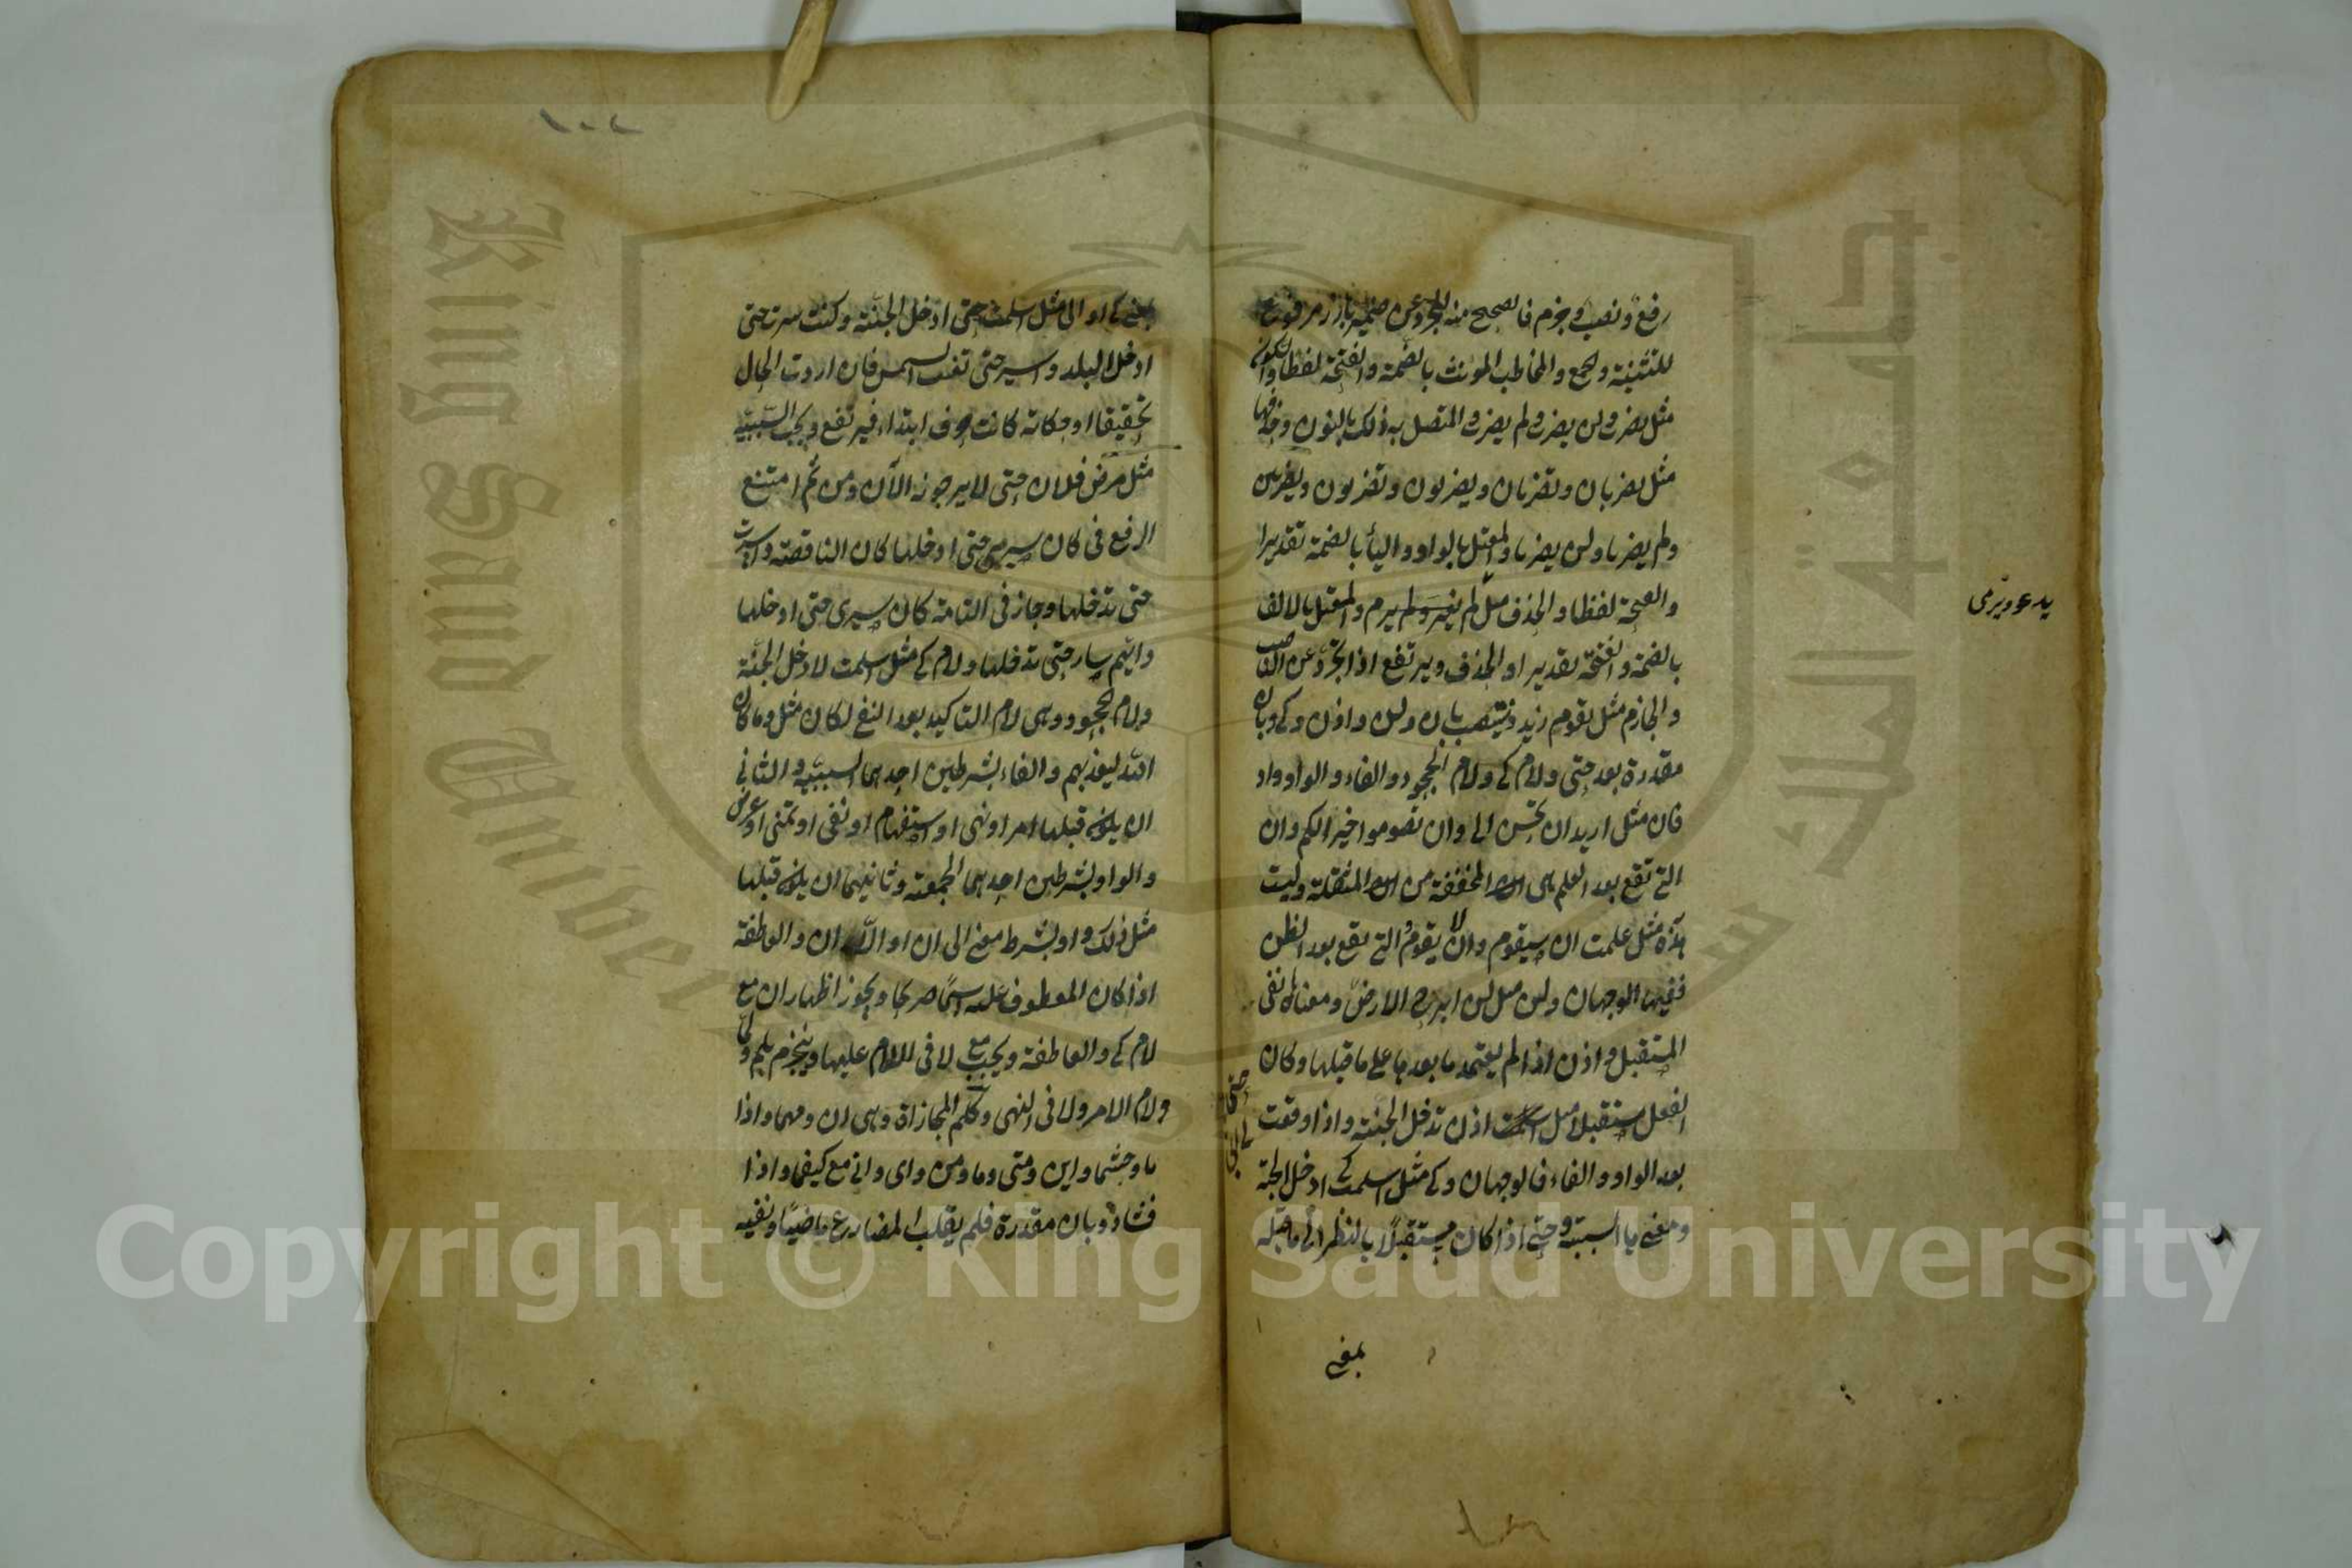 رفع ونصب وجزم فالصحيح منه المجرد عن ضمير بارز مرفوع
للتثنية والجمع والمخاطب المونث بالضمة والفتحة لفظا والسكون
مثل يضرب ولن يضرب ولم يضرب والمتصل به ذلك بالنون وحذفها
مثل يضربان وتضربان ويضربون وتضربون وتضربين
ولم يضربا ولن يضربا والمعتل بالواو والياء بالضمة تقديرا
والفتحة لفظا والحذف مثل لم يغز ولم يرم والمعتل بالالف
بالضمة والفتحة تقديرا والحذف ويرتفع اذا تجرد عن الناصب
والجازم مثل يقوم زيد وينتصب بان ولن واذن وكي وبان
مقدرة بعد حتى ولام كي ولام الجحود والفاء والواو واو
فان مثل اريد ان تحسن الي وان تصوموا خير لكم وان
التي تقع بعد العلم هي ان المخففة من ان المثقلة وليت
هذه مثل علمت ان سيقوم وان لا يقوم والتي تقع بعد الظن
ففيها الوجهان ولن مثل لن ابرح الارض ومعناها نفي
المستقبل واذن اذا لم يعتمد ما بعدها على ما قبلها وكان
الفعل مستقبلا مثل اسلمت اذن تدخل الجنة واذا وقعت
بعد الواو والفاء فالوجهان وكي مثل اسلمت كي ادخل الجنة
ومعنى ها السببية وحتى اذا كان مستقبلا بالنظر الى ما قبله
بمعنى
يدعو ويرمى
بمعنى كي او الى مثل اسلمت حتى ادخل الجنة وكنت سرت حتى
ادخل البلد واسير حتى تغيب الشمس فان اردت الحال
تحقيقا او حكاية كانت حرف ابتداء فيرتفع ويجب السببية
مثل مرض فلان حتى لا يرجونه الآن ومن ثم امتنع
الرفع في كان سيري حتى ادخلها كان الناقصة واسرت
حتى تدخلها وجاز في التامة كان سيرى حتى ادخلها
وايهم سار حتى تدخلها ولام كي مثل اسلمت لادخل الجنة
ولام الجحود وهى لام التاكيد بعد النفي لكان مثل وما كان
الله ليعذبهم والفاء بشرطين احدهما السببية والثاني
ان يكون قبلها امر او نهى او استفهام او نفى او تمنى او عرض
والواو بشرطين احدهما الجمعية وثانيهما ان يكون قبلها
مثل ذلك واو بشرط معنى الى ان او الا ان والعاطفة
اذا كان المعطوف عليه اسما صريحا ويجوز اظهار ان مع
لام كي والعاطفة ويجب مع لا في اللام عليها وينجزم بلم ولما
ولام الامر ولا في النهى وكلم المجازاة وهى ان ومهما واذا
ما وحيثما واين ومتى وما ومن واى وانى مع كيفما واذا
فشاذ وبان مقدرة فلم يقلب المضارع ماضيا ونفيه